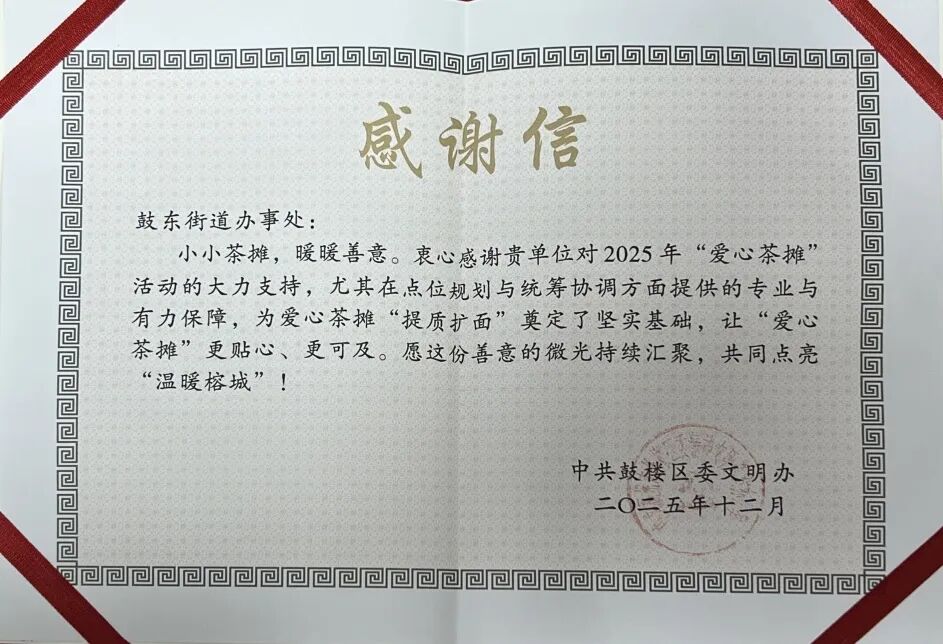 感谢信
鼓东街道办事处：
小小茶摊，暖暖善意。衷心感谢贵单位对2025年“爱心茶摊”
活动的大力支持，尤其在点位规划与统筹协调方面提供的专业与
有力保障，为爱心茶摊“提质扩面”奠定了坚实基础，让“爱心
茶摊”更贴心、更可及。愿这份善意的微光持续汇聚，共同点亮
“温暖榕城”！
中共鼓楼区委文明办
二〇二五年十二月